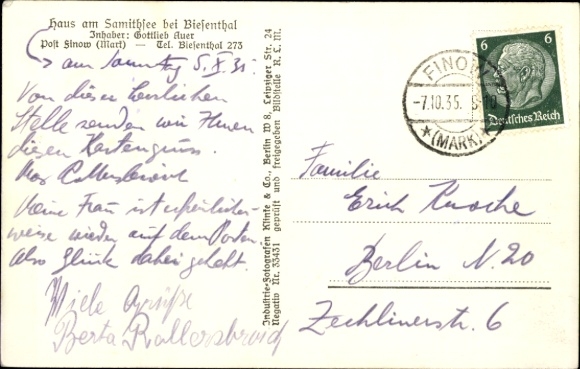 Haus am Samithsee bei Biesenthal
Inhaber: Gottlieb Auer
Post Finow (Mark) — Tel. Biesenthal 273
am Sonntag 5.X.35.
Von dieser herrlichen
Stelle senden wir Ihnen
diesen Kartengruss.
Max
Meine Frau ist erfreulicher-
weise wieder auf dem Posten
Also Glück dabei gehabt.
Viele Grüße
Berta Rallersbroich
Industrie-Fotografen Klinke & Co., Berlin W 8, Leipziger Str. 24
Negativ Nr. 33431 geprüft und freigegeben Bildstelle R. L. M.
FINOW
-7.10.35.
★(MARK)★
6 6
Deutsches Reich
Familie
Erich Kusche
Berlin N. 20
Zechlinerstr. 6